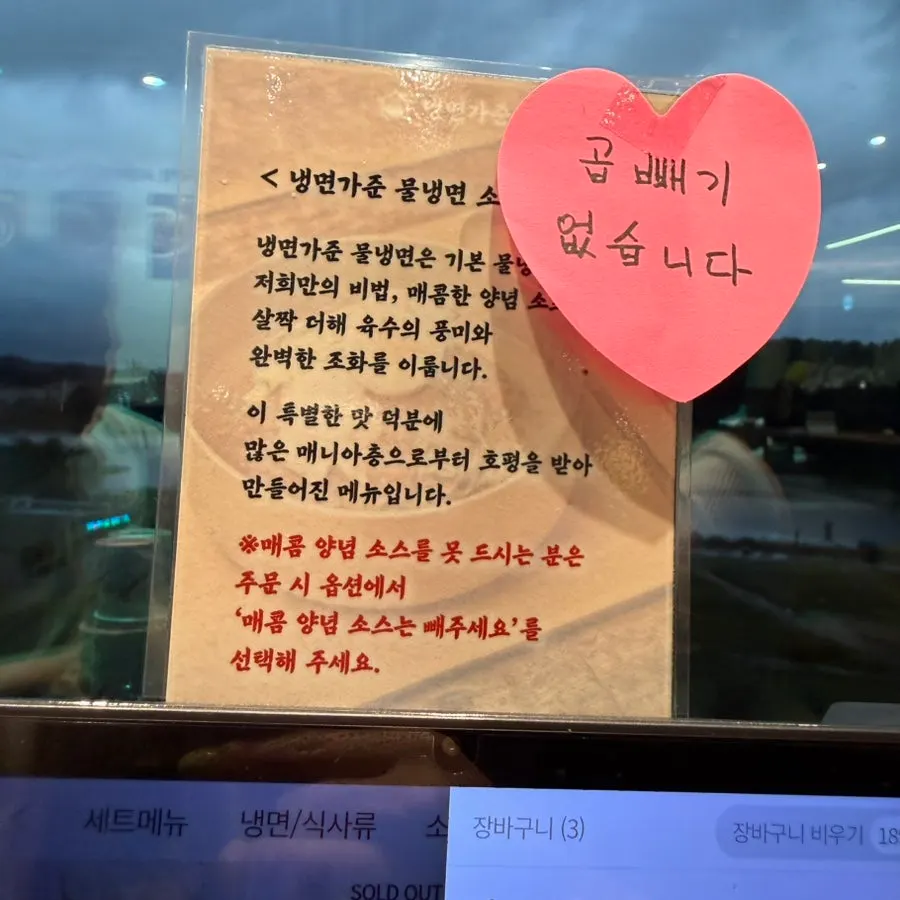 냉면가준
< 냉면가준 물냉면 소
냉면가준 물냉면은 기본 물냉
저희만의 비법, 매콤한 양념 소스
살짝 더해 육수의 풍미와
완벽한 조화를 이룹니다.
이 특별한 맛 덕분에
많은 매니아층으로부터 호평을 받아
만들어진 메뉴입니다.
※매콤 양념 소스를 못 드시는 분은
주문 시 옵션에서
‘매콤 양념 소스는 빼주세요’를
선택해 주세요.
곱빼기
없습니다
세트메뉴 냉면/식사류 소
SOLD OUT
장바구니 (3)
장바구니 비우기